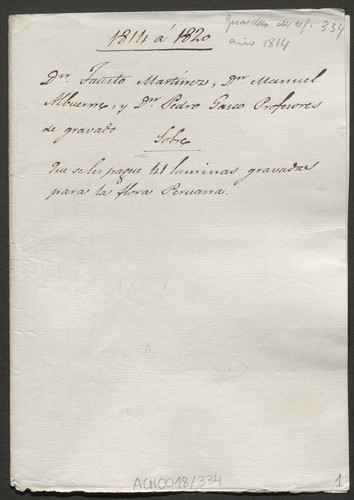 1814 á 1820
334
año 1814
Dn. Fausto Martinez, Dn. Manuel
Albuerne, y Dn. Pedro Gasco Profesores
de gravado
Sobre
Que se les pague 41 laminas gravadas
para la flora Peruana.
ACN0018/334
1